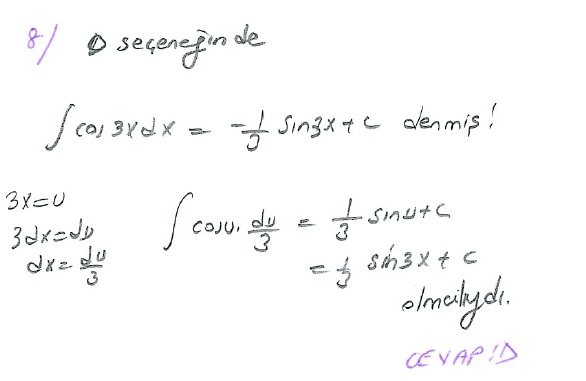 8/ D seçeneğinde
∫ cos 3x dx = -1/3 sin3x + c denmiş!
3x=u
3dx=du
dx=du/3
∫ cosu. du/3 = 1/3 sinu+c
= 1/3 sin3x + c
olmalıydı.
CEVAP: D